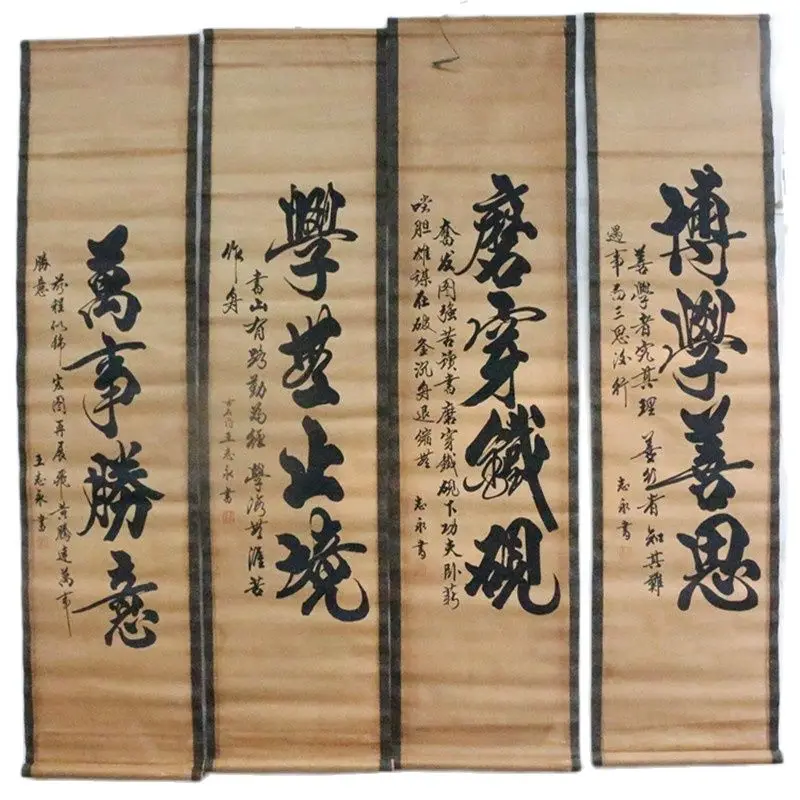 博學善思
善學者究其理 善行者知其難
遇事而三思後行
志永書
磨穿鐵硯
奮发图強苦讀書磨穿鐵硯下功夫卧薪
嚐胆雄謀在破釜沉舟退縮無
志永書
學無止境
書山有路勤為徑 學海無涯苦
作舟
王志永書
萬事勝意
前程似锦 宏图再展 飛黄騰達萬事
勝意
王志永書